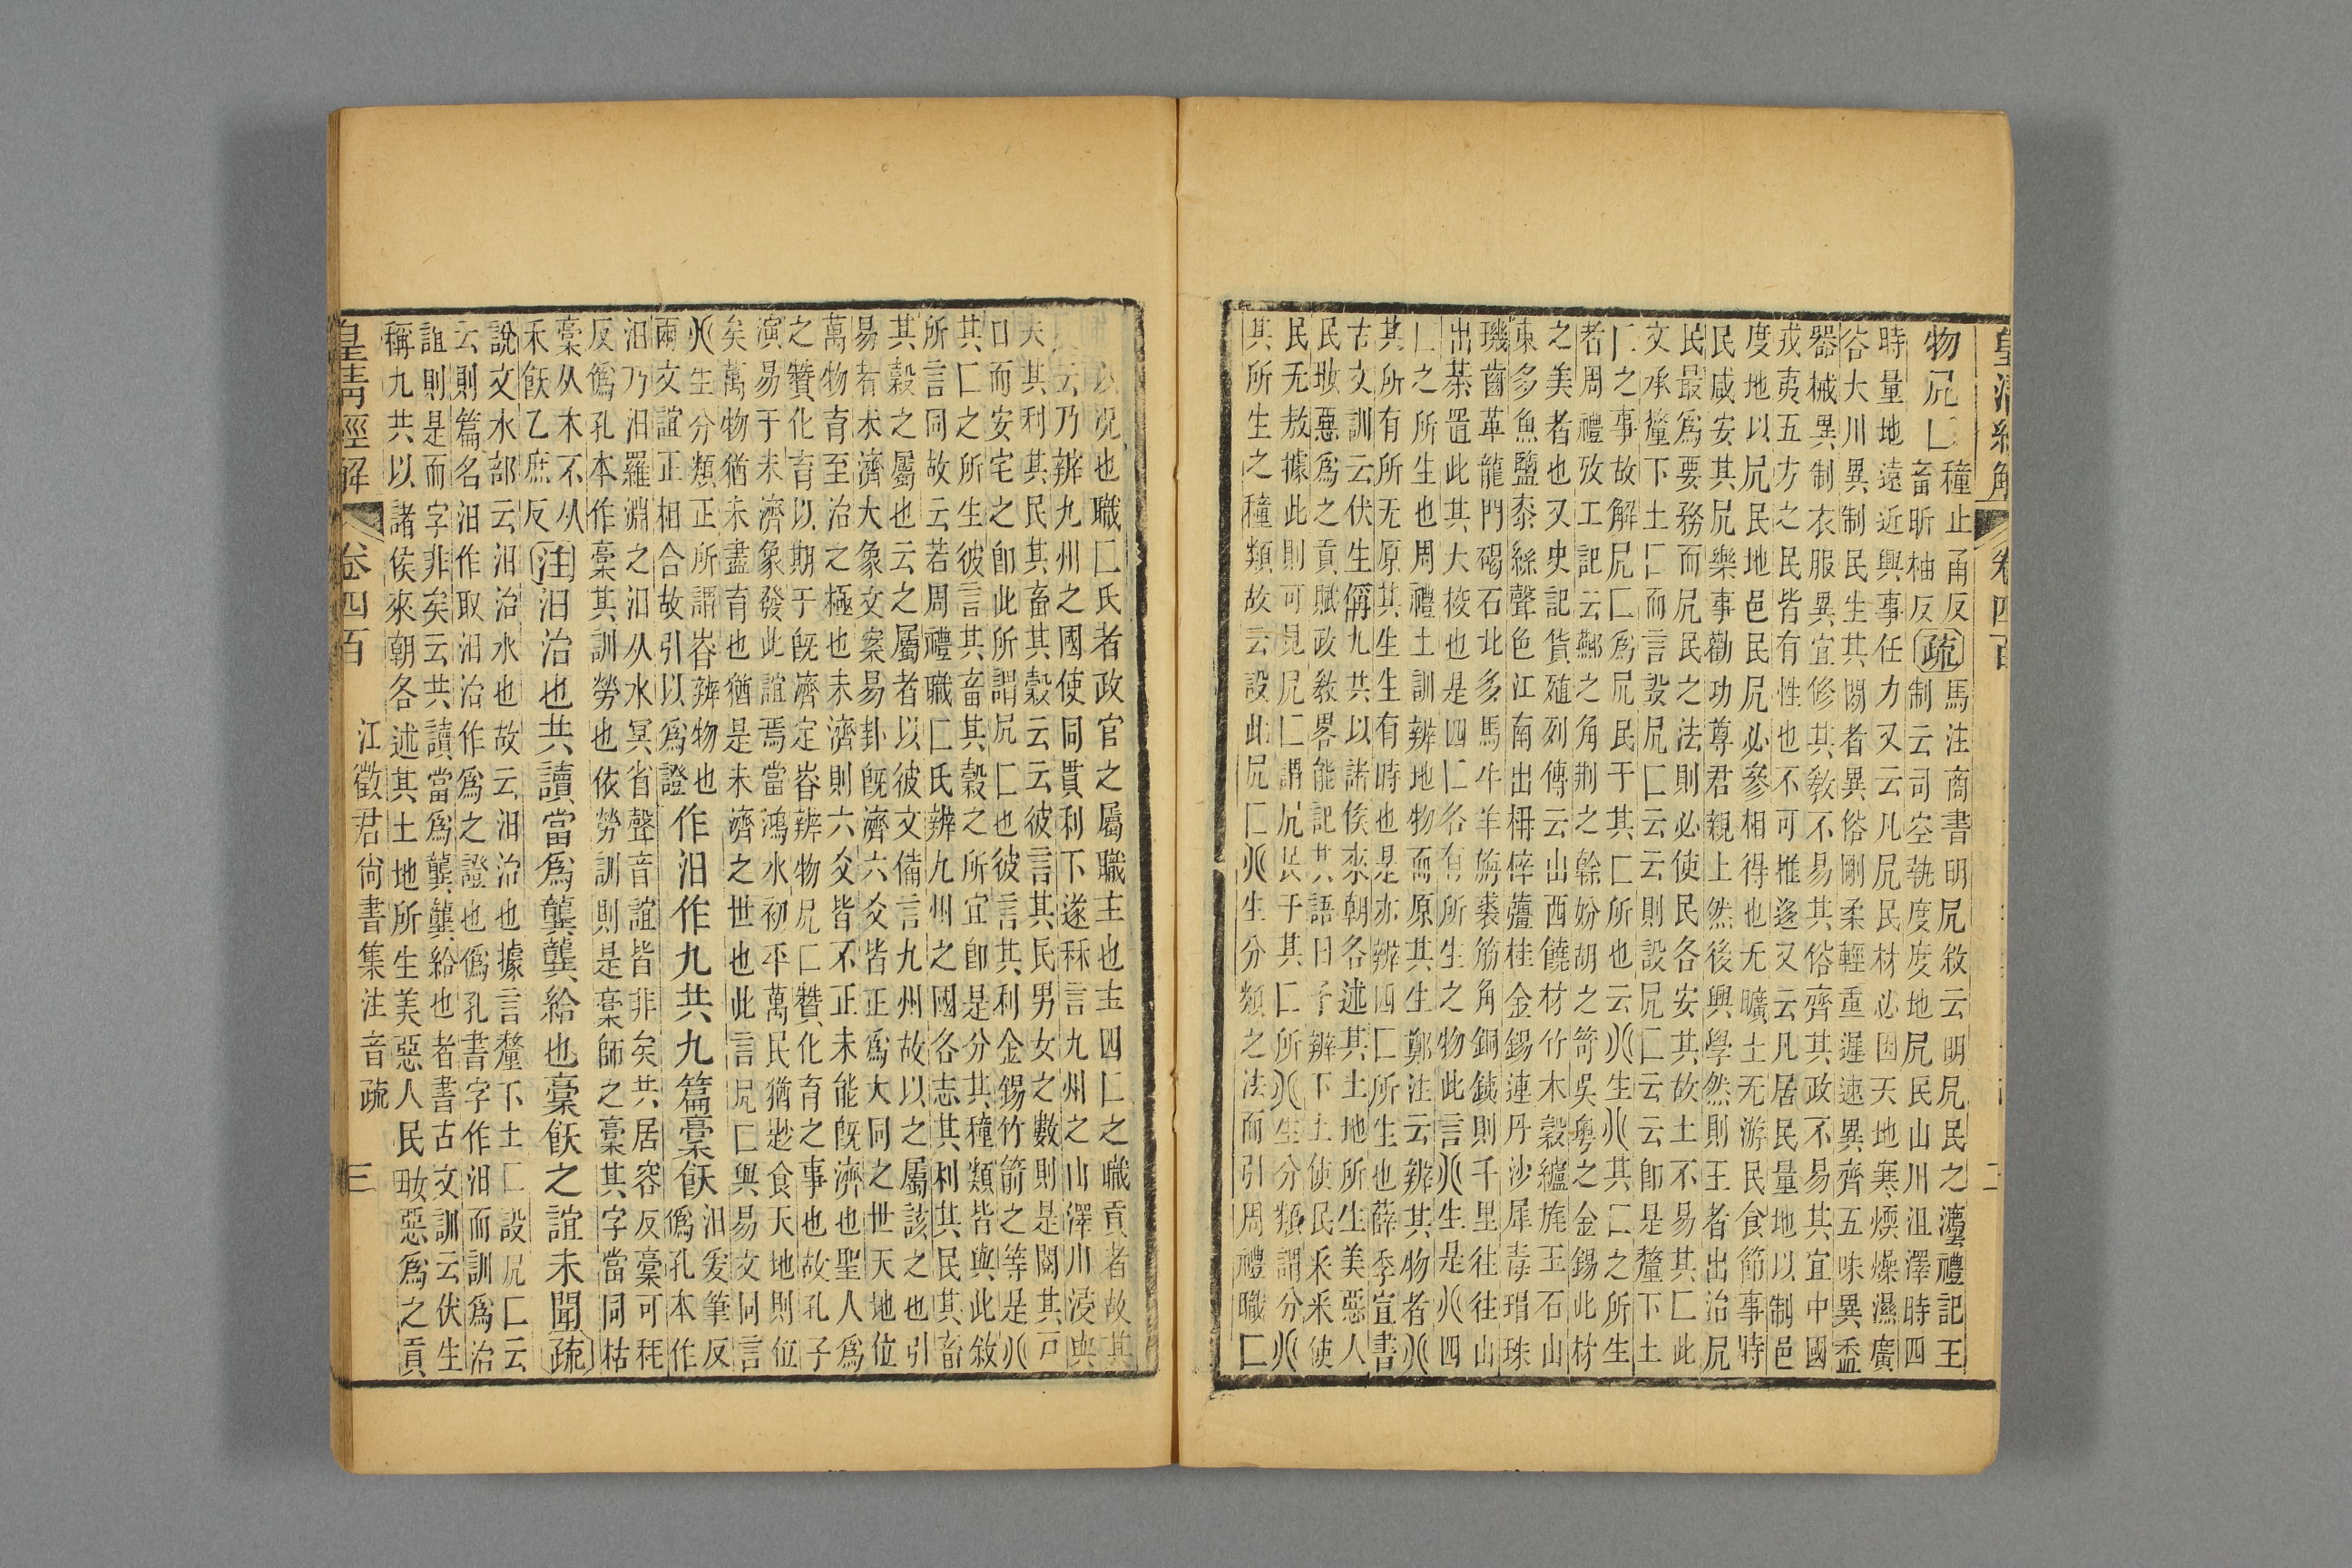 皇清經解 卷四百 二
物凥匚種止甬反畜昕柚反疏馬注商書明凥敘云明凥民之灋禮記王
制云司空執度度地凥民山川沮澤時四
時量地遠近興事任力又云凡凥民材必因天地寒煗燥濕廣
谷大川異制民生其閒者異俗剛柔輕重遲速異齊五味異盉
器械異制衣服異宜修其敎不易其俗齊其政不易其宜中國
戎夷五方之民皆有性也不可推遂又云凡居民量地以制邑
度地以凥民地邑民凥必參相得也无曠土无游民食節事時
民咸安其凥樂事勸功尊君親上然後興學然則王者出治凥
民最爲要務而凥民之法則必使民各安其故土不易其匚此
文承釐下土匚而言設凥匚云云則設凥匚云云卽是釐下土
匚之事故解凥匚爲凥民于其匚所也云𠔁生𠔁其匚之所生
者周禮攷工記云鄭之角荆之榦妢胡之笴吳粵之金錫此材
之美者也又史記貨殖列傳云山西饒材竹木穀纑旄玉石山
東多魚鹽桼絲聲色江南出枏梓薑桂金錫連丹沙犀毒瑁珠
璣齒革龍門碣石北多馬牛羊旃裘筋角銅銕則千里往往山
出棊置此其大㮣也是四匚各有所生之物此言𠔁生是𠔁四
匚之所生也周禮土訓辨地物而原其生鄭注云辨其物者𠔁
其所有所无原其生生有時也是亦辨四匚所生也薛季宣書
古文訓云伏生偁九共以諸侯來朝各述其土地所生美惡人
民㺯惡爲之貢賦政敎畧能記其語曰予辨下土使民釆釆使
民无敖據此則可見凥匚謂凥民于其匚所𠔁生分類謂分𠔁
其所生之種類故云設此凥匚𠔁生分類之法而引周禮職匚
以況也職匚氏者政官之屬職主也主四匚之職貢者故其
云乃辨九州之國使同貫利下遂秝言九州之山澤川浸與
夫其利其民其畜其穀云云彼言其民男女之數則是閱其戸
口而安宅之卽此所謂凥匚也彼言其利金錫竹箭之等是𠔁
其匚之所生彼言其畜其穀之所宜卽是分其種類皆與此敘
所言同故云若周禮職匚氏辨九州之國各志其利其民其畜
其穀之屬也云之屬者以彼文備言九州故以之屬該之也引
易者未濟大象文案易卦旣濟六爻皆正爲大同之世天地位
萬物育至治之極也未濟則六爻皆不正未能旣濟也聖人爲
之贊化育以期于旣濟定昚辨物凥匚贊化育之事也故孔子
演易于未濟象發此誼焉當鴻水初平萬民猶尟食天地則位
矣萬物猶未盡育也猶是未濟之世也此言凥匚與易文同言
𠔁生分類正所謂昚辨物也
兩文誼正相合故引以爲證作汨作九共九篇稾飫汨爰筆反
僞孔本作
汨乃汨羅淵之汨从水冥省聲音誼皆非矣共居容反稾可秏
反僞孔本作稾其訓勞也依勞訓則是稾師之稾其字當同枯
稾从木不从
禾飫乙庶反注汨治也共讀當爲龔龔給也稾飫之誼未聞疏
說文水部云汨治水也故云汨治也據言釐下土匚設凥匚云
云則篇名汨作取汨治作爲之證也僞孔書字作汨而訓爲治
誼則是而字非矣云共讀當爲龔龔給也者書古文訓云伏生
稱九共以諸侯來朝各述其土地所生美惡人民㺯惡爲之貢
皇清經解 卷四百 江徵君尚書集注音疏 三